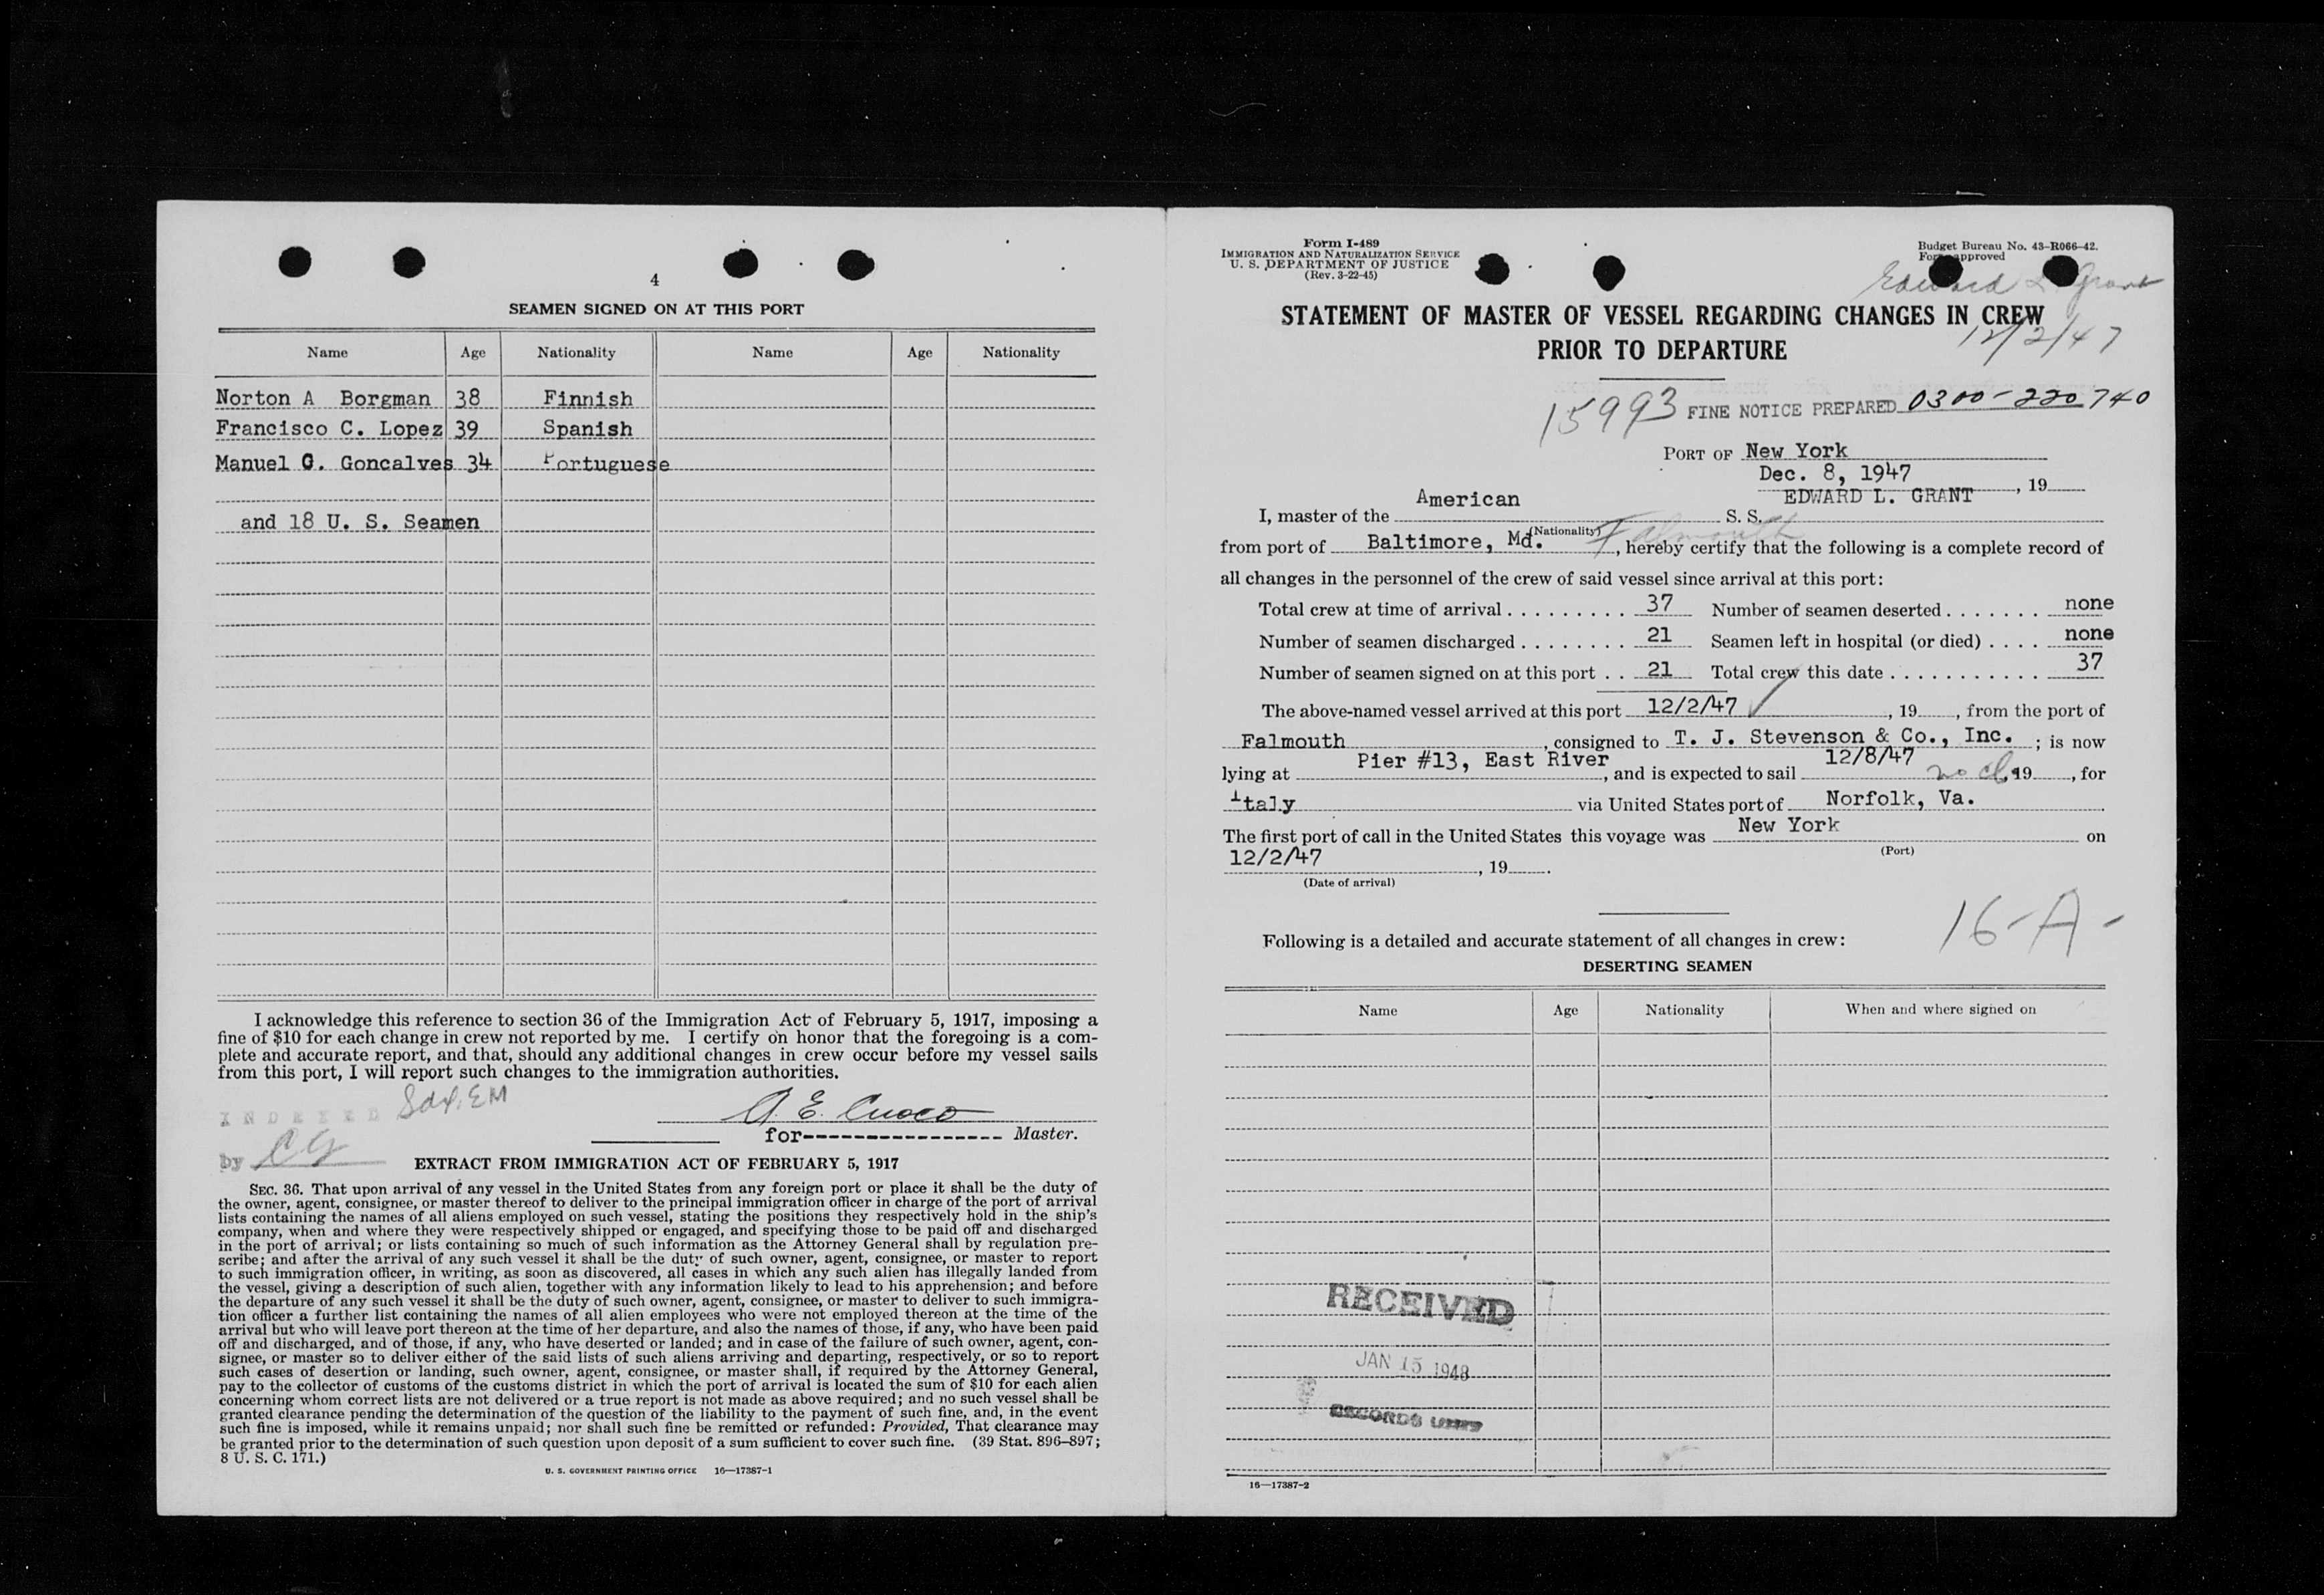 4
SEAMEN SIGNED ON AT THIS PORT
Name Age Nationality Name Age Nationality
Norton A Borgman 38 Finnish
Francisco C. Lopez 39 Spanish
Manuel G. Goncalves 34 Portuguese
and 18 U. S. Seamen
I acknowledge this reference to section 36 of the Immigration Act of February 5, 1917, imposing a
fine of $10 for each change in crew not reported by me. I certify on honor that the foregoing is a com-
plete and accurate report, and that, should any additional changes in crew occur before my vessel sails
from this port, I will report such changes to the immigration authorities.
INDEXED
A. E. Cuoco
for---------------- Master.
by CG
EXTRACT FROM IMMIGRATION ACT OF FEBRUARY 5, 1917
SEC. 36. That upon arrival of any vessel in the United States from any foreign port or place it shall be the duty of
the owner, agent, consignee, or master thereof to deliver to the principal immigration officer in charge of the port of arrival
lists containing the names of all aliens employed on such vessel, stating the positions they respectively hold in the ship's
company, when and where they were respectively shipped or engaged, and specifying those to be paid off and discharged
in the port of arrival; or lists containing so much of such information as the Attorney General shall by regulation pre-
scribe; and after the arrival of any such vessel it shall be the duty of such owner, agent, consignee, or master to report
to such immigration officer, in writing, as soon as discovered, all cases in which any such alien has illegally landed from
the vessel, giving a description of such alien, together with any information likely to lead to his apprehension; and before
the departure of any such vessel it shall be the duty of such owner, agent, consignee, or master to deliver to such immigra-
tion officer a further list containing the names of all alien employees who were not employed thereon at the time of the
arrival but who will leave port thereon at the time of her departure, and also the names of those, if any, who have been paid
off and discharged, and of those, if any, who have deserted or landed; and in case of the failure of such owner, agent, con-
signee, or master so to deliver either of the said lists of such aliens arriving and departing, respectively, or so to report
such cases of desertion or landing, such owner, agent, consignee, or master shall, if required by the Attorney General,
pay to the collector of customs of the customs district in which the port of arrival is located the sum of $10 for each alien
concerning whom correct lists are not delivered or a true report is not made as above required; and no such vessel shall be
granted clearance pending the determination of the question of the liability to the payment of such fine, and, in the event
such fine is imposed, while it remains unpaid; nor shall such fine be remitted or refunded: Provided, That clearance may
be granted prior to the determination of such question upon deposit of a sum sufficient to cover such fine. (39 Stat. 896–897;
8 U. S. C. 171.)
U. S. GOVERNMENT PRINTING OFFICE 16—17387-1
Form I-489
IMMIGRATION AND NATURALIZATION SERVICE
U. S. DEPARTMENT OF JUSTICE
(Rev. 3-22-45)
Budget Bureau No. 43-R066-42.
Form approved
Edward L. Grant
STATEMENT OF MASTER OF VESSEL REGARDING CHANGES IN CREW
PRIOR TO DEPARTURE
12/2/47
15993 FINE NOTICE PREPARED 0300-220740
PORT OF New York
Dec. 8, 1947, 19
I, master of the American S. S. EDWARD L. GRANT
(Nationality)
from port of Baltimore, Md. Falmouth, hereby certify that the following is a complete record of
all changes in the personnel of the crew of said vessel since arrival at this port:
Total crew at time of arrival 37 Number of seamen deserted none
Number of seamen discharged 21 Seamen left in hospital (or died) none
Number of seamen signed on at this port 21 Total crew this date 37
The above-named vessel arrived at this port 12/2/47, 19, from the port of
Falmouth, consigned to T. J. Stevenson & Co., Inc. ; is now
lying at Pier #13, East River, and is expected to sail 12/8/47 19, for
Italy via United States port of Norfolk, Va.
The first port of call in the United States this voyage was New York on
(Port)
12/2/47, 19.
(Date of arrival)
16-A-
Following is a detailed and accurate statement of all changes in crew:
DESERTING SEAMEN
Name Age Nationality When and where signed on
RECEIVED
JAN 15 1948
RECORDS UNIT
16—17387-2